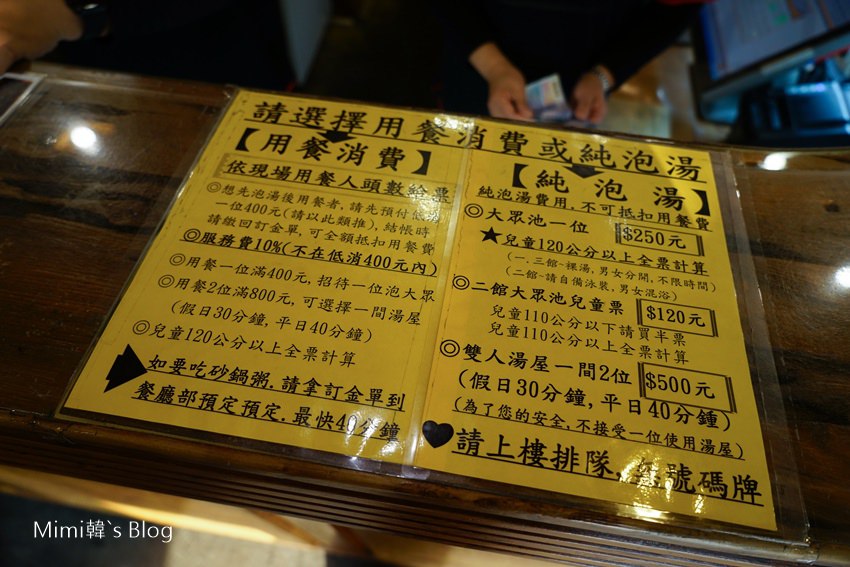 請選擇用餐消費或純泡湯
【用餐消費】
依現場用餐人頭數給票
◎想先泡湯後用餐者, 請先預付低消
一位400元(請以此類推), 結帳時
請繳回訂金單, 可全額抵扣用餐費
◎服務費10%(不在低消400元內)
◎用餐一位滿400元, 招待一位泡大眾
◎用餐2位滿800元, 可選擇一間湯屋
(假日30分鐘, 平日40分鐘)
◎兒童120公分以上全票計算
如要吃砂鍋粥. 請拿訂金單到
餐廳部預定預定. 最快40分鐘
【純泡湯】
純泡湯費用, 不可抵扣用餐費
◎大眾池一位 $250元
★兒童120公分以上全票計算
(一. 三館-裸湯, 男女分開, 不限時間)
(二館-請自備泳裝, 男女混浴)
◎二館大眾池兒童票 $120元
兒童110公分以下請買半票
兒童110公分以上全票計算
◎雙人湯屋一間2位 $500元
(假日30分鐘, 平日40分鍾)
(為了您的安全, 不接受一位使用湯屋)
♥請上樓排隊, 無號碼牌
Mimi韓`s Blog